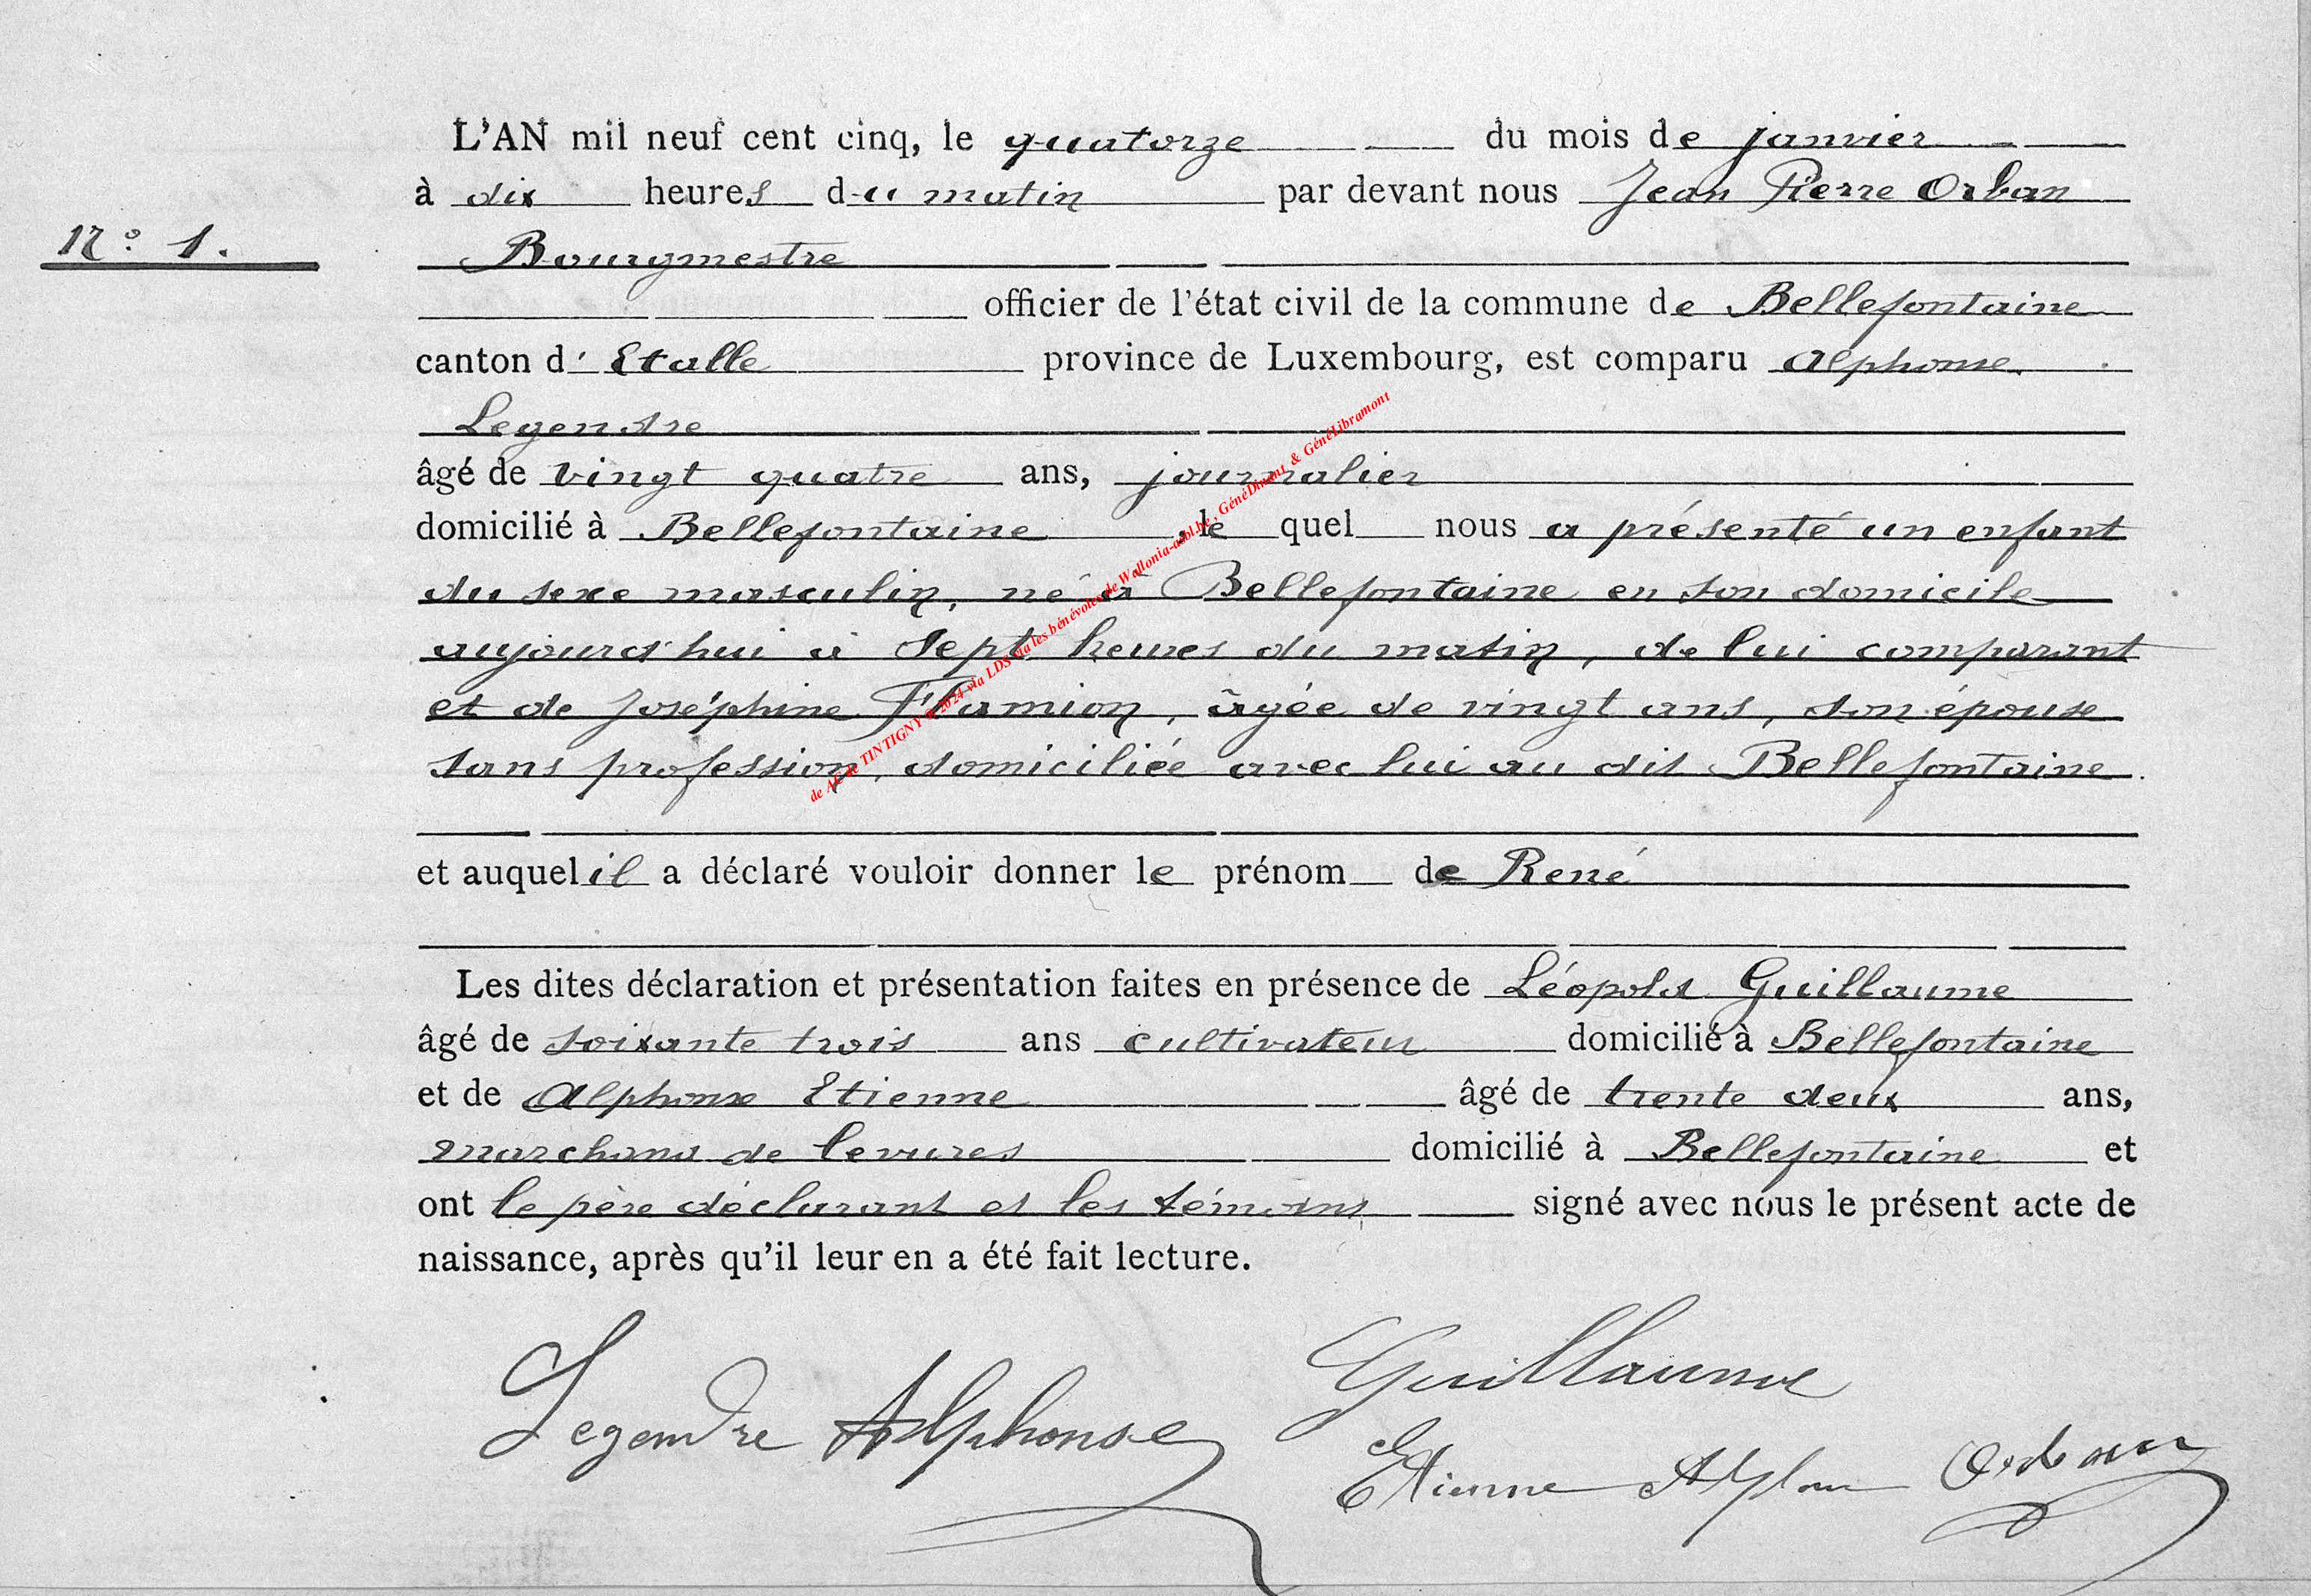 L'AN mil neuf cent cinq, le quatorze du mois de janvier
à dix heures du matin par devant nous Jean Pierre Orban
N° 1.
Bourgmestre
officier de l'état civil de la commune de Bellefontaine
canton d'Etalle province de Luxembourg, est comparu Alphonse
Legendre
âgé de vingt quatre ans, journalier
domicilié à Bellefontaine, le quel nous a présenté un enfant
du sexe masculin, né à Bellefontaine en son domicile
aujourd'hui à sept heures du matin, de lui comparant
et de Joséphine Flamion, âgée de vingt ans, son épouse
sans profession, domiciliée avec lui au dit Bellefontaine.
et auquel il a déclaré vouloir donner le prénom de René
Les dites déclaration et présentation faites en présence de Léopold Guillaume
âgé de soixante trois ans cultivateur domicilié à Bellefontaine
et de Alphonse Etienne âgé de trente deux ans,
marchand de levures domicilié à Bellefontaine et
ont le père déclarant et les témoins signé avec nous le présent acte de
naissance, après qu'il leur en a été fait lecture.
Guillaume
Legendre Alphonse
Etienne Orban
de TINTIGNY 2024 via LDS via les bénévoles de Wallonia-asbl.be, GénéDinant & GénéLibramont